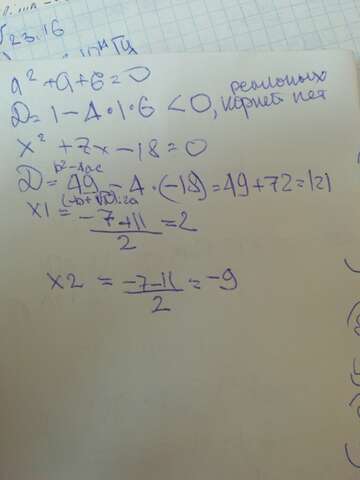 23.16
a² + a + 6 = 0
D = 1 - 4 • 1 • 6 < 0, реальных корней нет
x² + 7x - 18 = 0
b² - 4ac
D = 49 - 4 • (-18) = 49 + 72 = 121
(-b + √D) : 2a
x1 = -7+11 / 2 = 2
x2 = -7-11 / 2 = -9